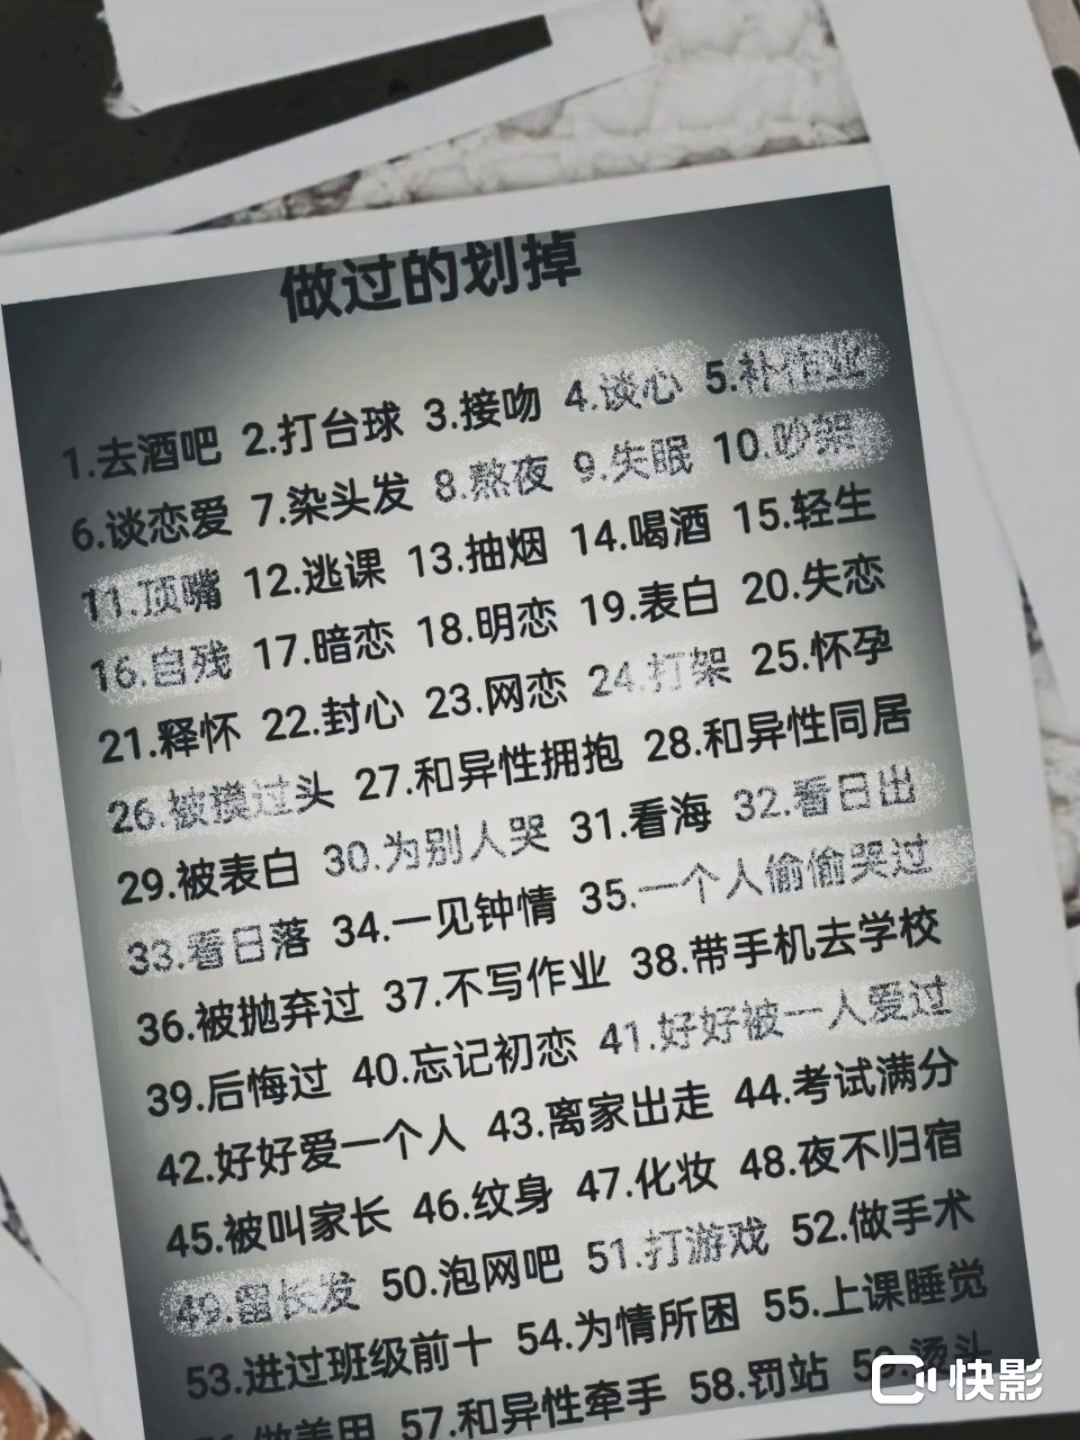 做过的划掉
1.去酒吧 2.打台球 3.接吻 4.谈心 5.补作业
6.谈恋爱 7.染头发 8.熬夜 9.失眠 10.吵架
11.顶嘴 12.逃课 13.抽烟 14.喝酒 15.轻生
16.自残 17.暗恋 18.明恋 19.表白 20.失恋
21.释怀 22.封心 23.网恋 24.打架 25.怀孕
26.被摸过头 27.和异性拥抱 28.和异性同居
29.被表白 30.为别人哭 31.看海 32.看日出
33.看日落 34.一见钟情 35.一个人偷偷哭过
36.被抛弃过 37.不写作业 38.带手机去学校
39.后悔过 40.忘记初恋 41.好好被一人爱过
42.好好爱一个人 43.离家出走 44.考试满分
45.被叫家长 46.纹身 47.化妆 48.夜不归宿
49.留长发 50.泡网吧 51.打游戏 52.做手术
53.进过班级前十 54.为情所困 55.上课睡觉
56.做美甲 57.和异性牵手 58.罚站 59.烫头
快影